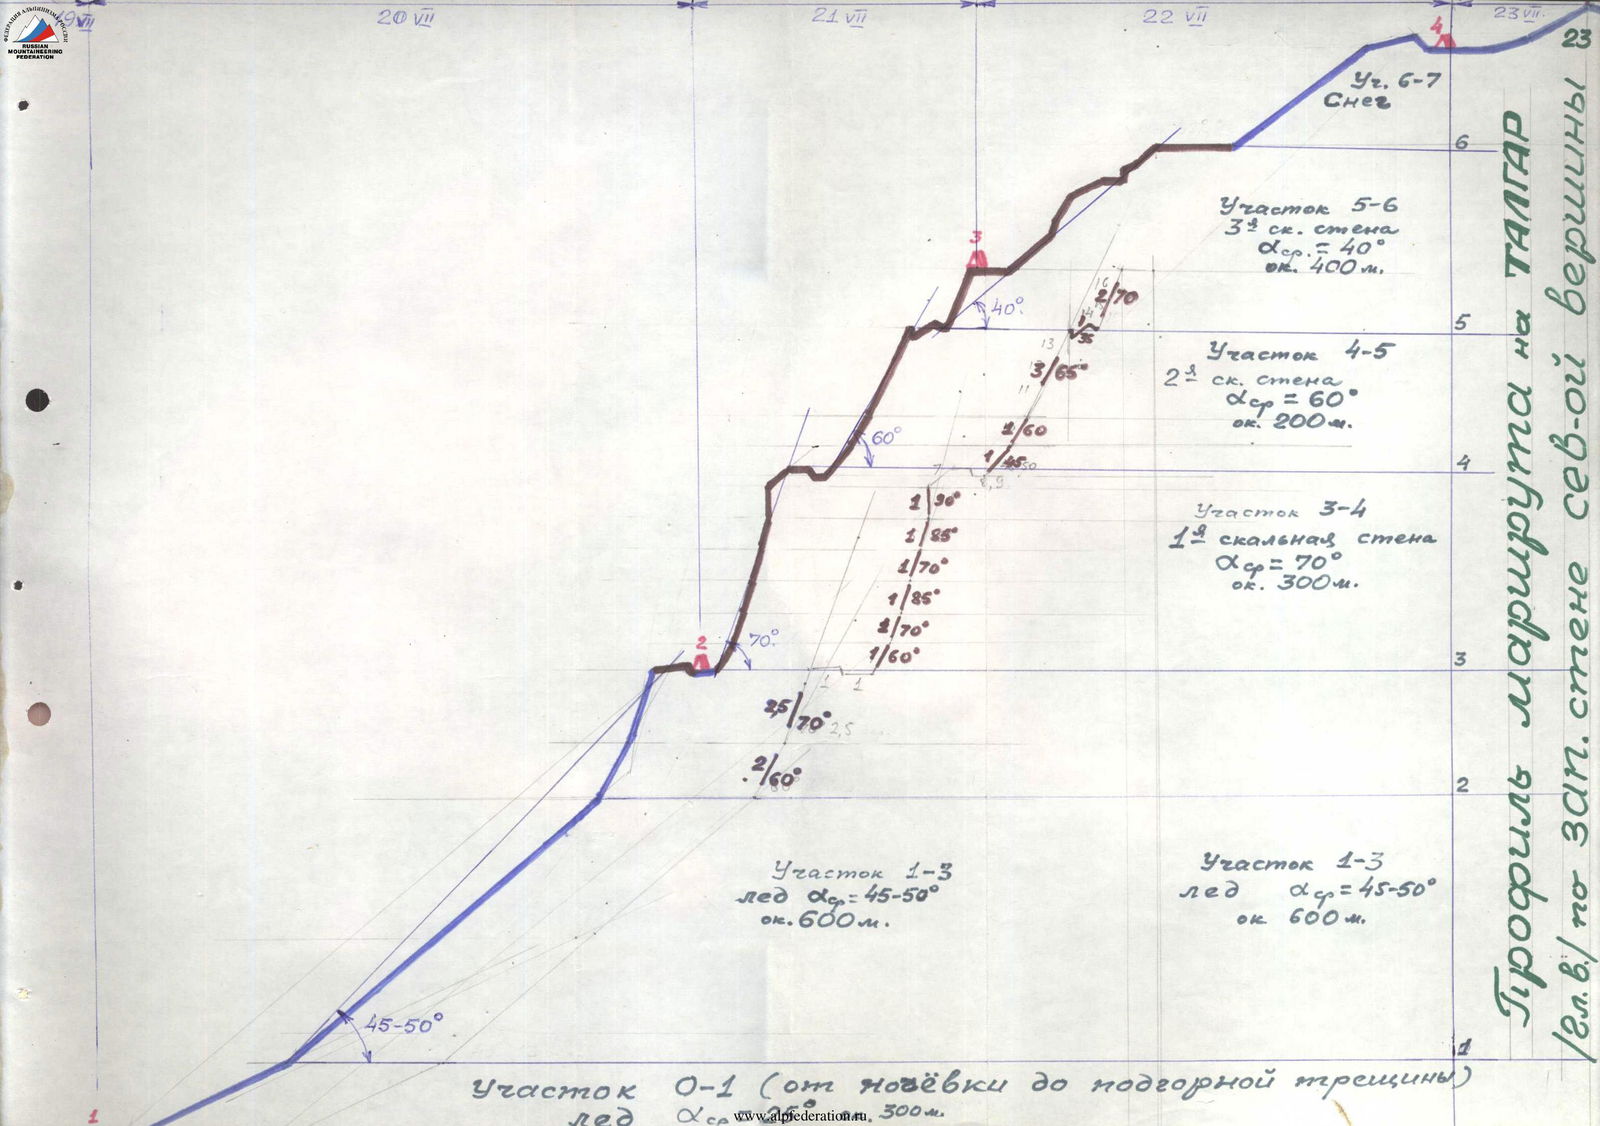 19 VII
20 VII
21 VII
22 VII
23 VII.
23
ФЕДЕРАЦИЯ АЛЬПИНИЗМА РОССИИ
RUSSIAN
MOUNTAINEERING
FEDERATION
4
Уч. 6-7
Снег
6
Участок 5-6
3я ск. стена
αср. = 40°
ок. 400м.
3
40°
2/70
35
5
13
3/65°
11
Участок 4-5
2я ск. стена
αср = 60°
ок. 200м.
60°
1/60
1/45
4
1 90°
1 85°
1/70°
1/85°
1/70°
1/60°
Участок 3-4
1я скальная стена
αср = 70°
ок. 300м.
2
70°
3
1 1
2,5/70° 2,5
2/60°
2
Участок 1-3
лед αср = 45-50°
ок. 600м.
Участок 1-3
лед αср = 45-50°
ок 600м.
45-50°
1
Участок 0-1 (от ночёвки до подгорной трещины)
лед αср = 25° ок. 300м.
1
www.alpfederation.ru
Профиль маршрута на ТАЛГАР
/гл. в./ по зап. стене сев-ой вершины